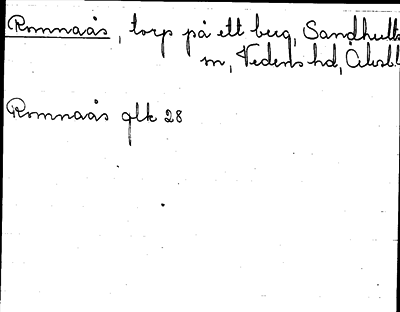 Romnaås, torp på ett berg, Sandhults
sn, Vedens hd, Älvsbl
Romnaås glk 28